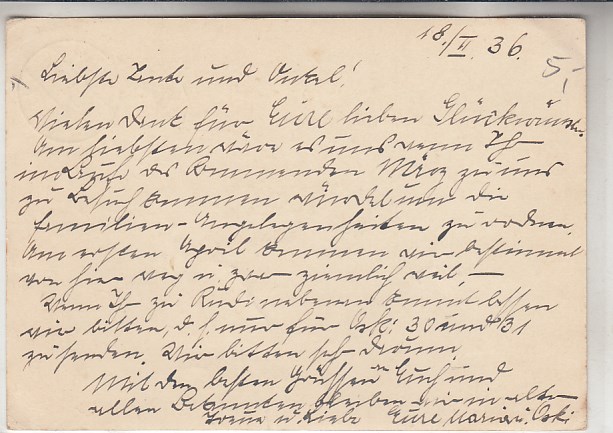 18./II. 36.
5,-
Liebste Tante und Onkel!
Vielen Dank für Eure lieben Glückwünsche.
Am liebsten wäre es uns wenn Ihr
im Laufe des kommenden März zu uns
zu Besuch kommen würdet um die
Familien-Angelegenheiten zu ordnen.
Am ersten April kommen wir bestimmt
von hier weg u. zwar ziemlich weit. —
Wenn Ihr zu Rudi kommt lassen
wir bitten, d. h. nur für Oski 30 und 31
zu senden. Wir bitten sehr darum.
Mit den besten Grüssen an Euch und
allen Bekannten bleiben wir in alter
Treue u. Liebe Eure Maria u. Oski